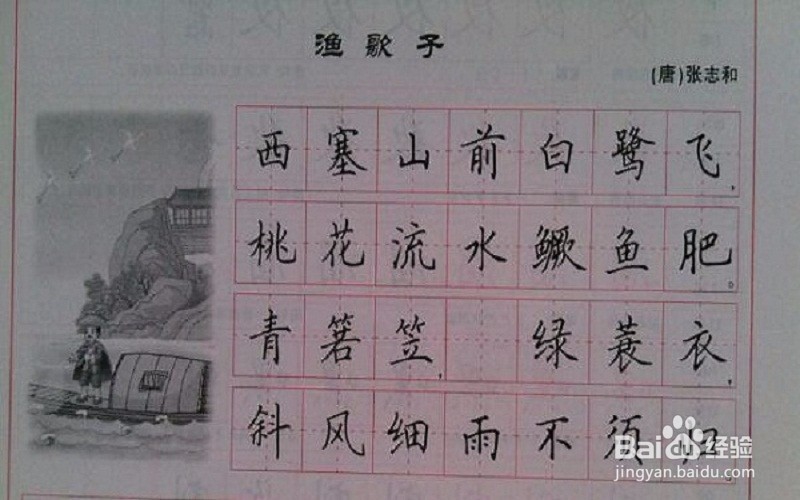 渔歌子
(唐)张志和
西塞山前白鹭飞,
桃花流水鳜鱼肥。
青箬笠,绿蓑衣,
斜风细雨不须归
Baidu经验
jingyan.baidu.com